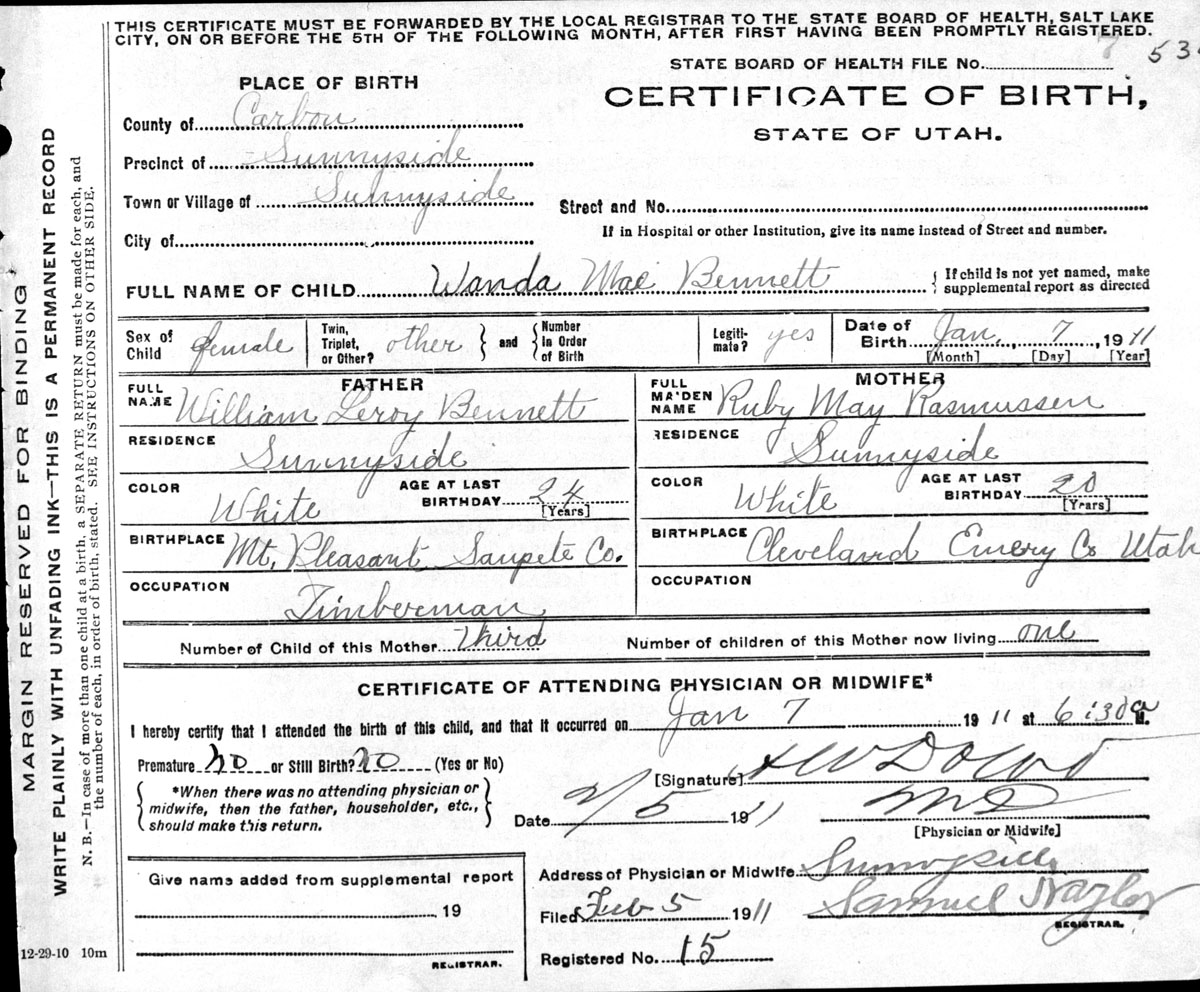 THIS CERTIFICATE MUST BE FORWARDED BY THE LOCAL REGISTRAR TO THE STATE BOARD OF HEALTH, SALT LAKE
CITY, ON OR BEFORE THE 5TH OF THE FOLLOWING MONTH, AFTER FIRST HAVING BEEN PROMPTLY REGISTERED.
STATE BOARD OF HEALTH FILE No. 7 53
PLACE OF BIRTH
CERTIFICATE OF BIRTH,
STATE OF UTAH.
County of Carbon
Precinct of Sunnyside
Town or Village of Sunnyside
Street and No.
City of
If in Hospital or other Institution, give its name instead of Street and number.
FULL NAME OF CHILD Wanda Mae Bennett { If child is not yet named, make
supplemental report as directed
Sex of Child female
Twin, Triplet, or Other? other } and { Number In Order of Birth
Legitimate? yes
Date of Birth Jan. 7, 1911
[Month] [Day] [Year]
FATHER
FULL NAME William Leroy Bennett
RESIDENCE Sunnyside
COLOR White AGE AT LAST BIRTHDAY 24 [Years]
BIRTHPLACE Mt. Pleasant Sanpete Co.
OCCUPATION Timberman
MOTHER
FULL MAIDEN NAME Ruby May Rasmussen
RESIDENCE Sunnyside
COLOR White AGE AT LAST BIRTHDAY 20 [Years]
BIRTHPLACE Cleveland Emery Co Utah
OCCUPATION
Number of Child of this Mother third Number of children of this Mother now living one
CERTIFICATE OF ATTENDING PHYSICIAN OR MIDWIFE*
I hereby certify that I attended the birth of this child, and that it occurred on Jan 7 1911 at 6:30 a M.
Premature no or Still Birth? no (Yes or No)
[Signature] H W Dowd
*When there was no attending physician or
midwife, then the father, householder, etc.,
should make this return.
Date 2/5 1911
MD
[Physician or Midwife]
Give name added from supplemental report
19
REGISTRAR.
Address of Physician or Midwife Sunnyside
Filed Feb 5 1911 Samuel Naylor
REGISTRAR.
Registered No. 15
12-29-10 10m
MARGIN RESERVED FOR BINDING
WRITE PLAINLY WITH UNFADING INK—THIS IS A PERMANENT RECORD
N. B.—In case of more than one child at a birth, a SEPARATE RETURN must be made for each, and
the number of each, in order of birth, stated. SEE INSTRUCTIONS ON OTHER SIDE.